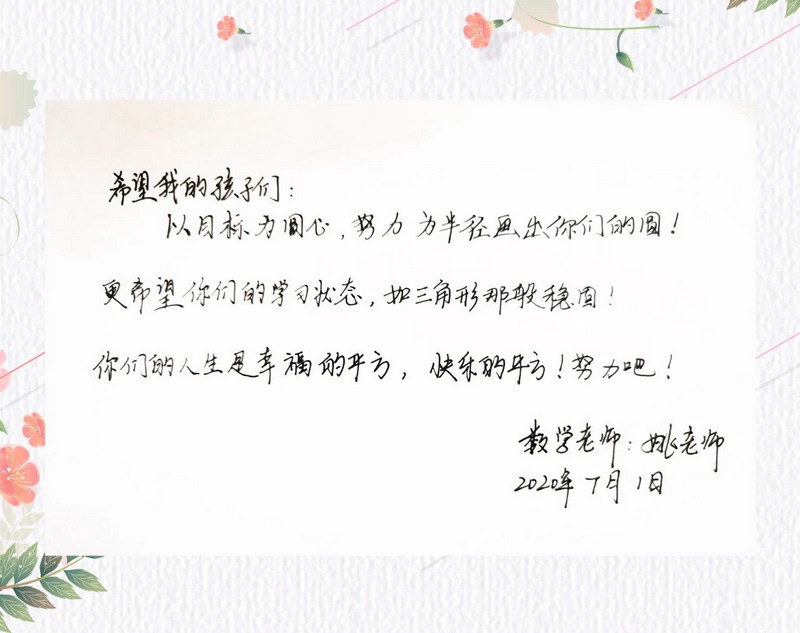 希望我的孩子们:
以目标为圆心,努力为半径画出你们的圆!
更希望你们的学习状态,如三角形那般稳固!
你们的人生是幸福的平方,快乐的平方!努力吧!
数学老师:姚老师
2020年7月1日